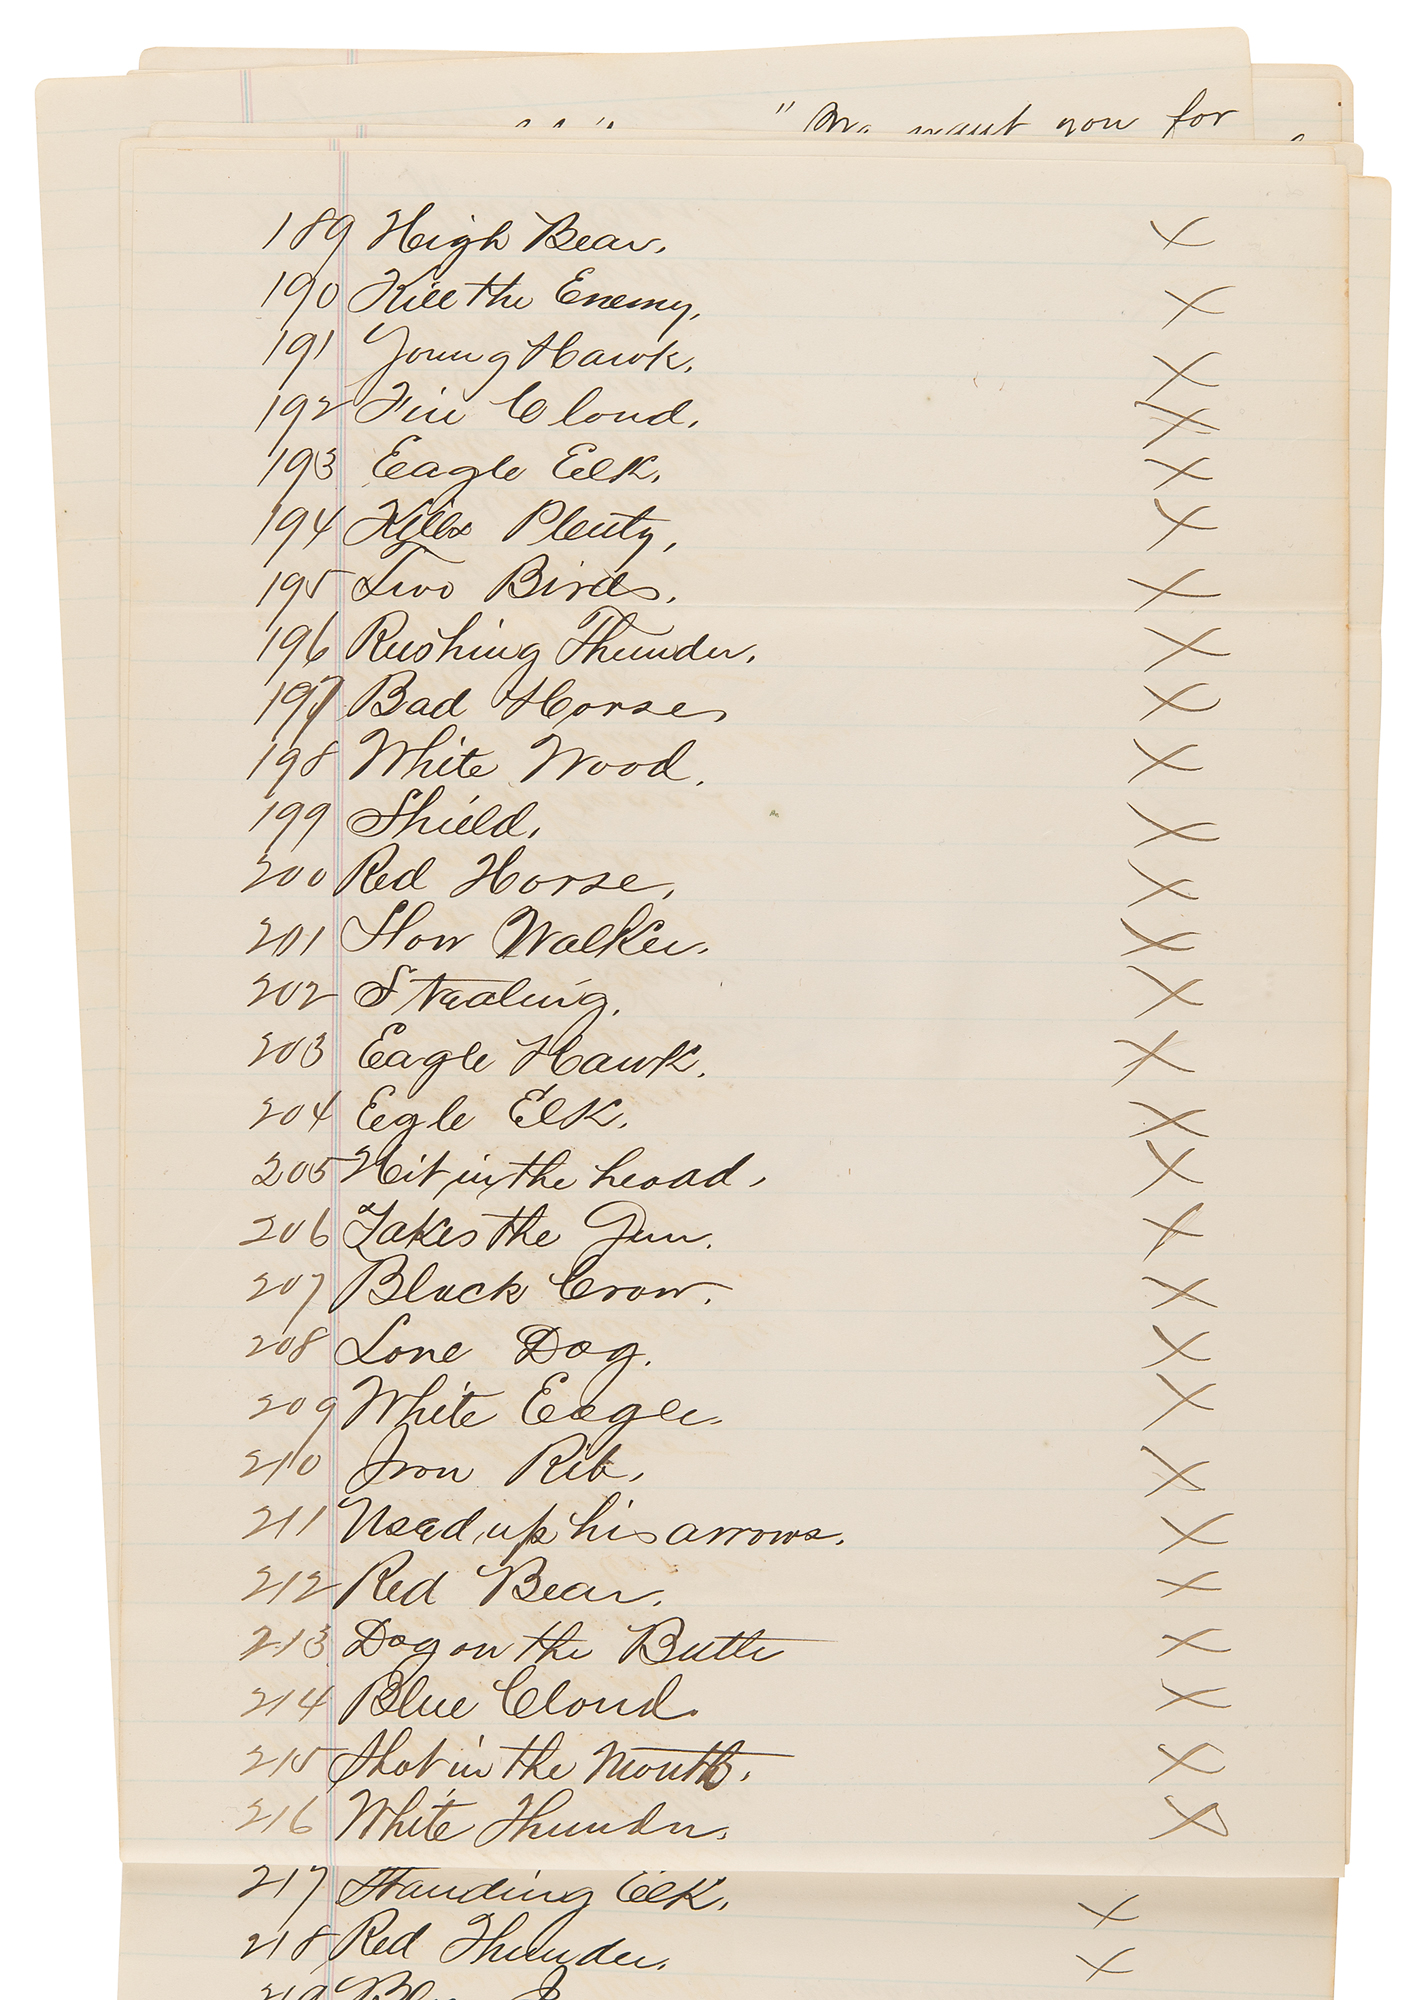 " We want you for
189 High Bear. X
190 Kill the Enemy. X
191 Young Hawk. X
192 Fire Cloud. X
193 Eagle Elk. X
194 Kills Plenty, X
195 Two Birds. X
196 Rushing Thunder. X
197 Bad Horse, X
198 White Wood. X
199 Shield. X
200 Red Horse, X
201 Slow Walker. X
202 Stealing. X
203 Eagle Hawk. X
204 Eegle Elk. X
205 Hit in the head, X
206 Takes the Gun. X
207 Black Crow. X
208 Lone Dog. X
209 White Eagle. X
210 Iron Rib. X
211 Used up his arrows. X
212 Red Bear. X
213 Dog on the Butte X
214 Blue Cloud. X
215 Shot in the Mouth. X
216 White Thunder. X
217 Standing Elk. X
218 Red Thunder. X
219